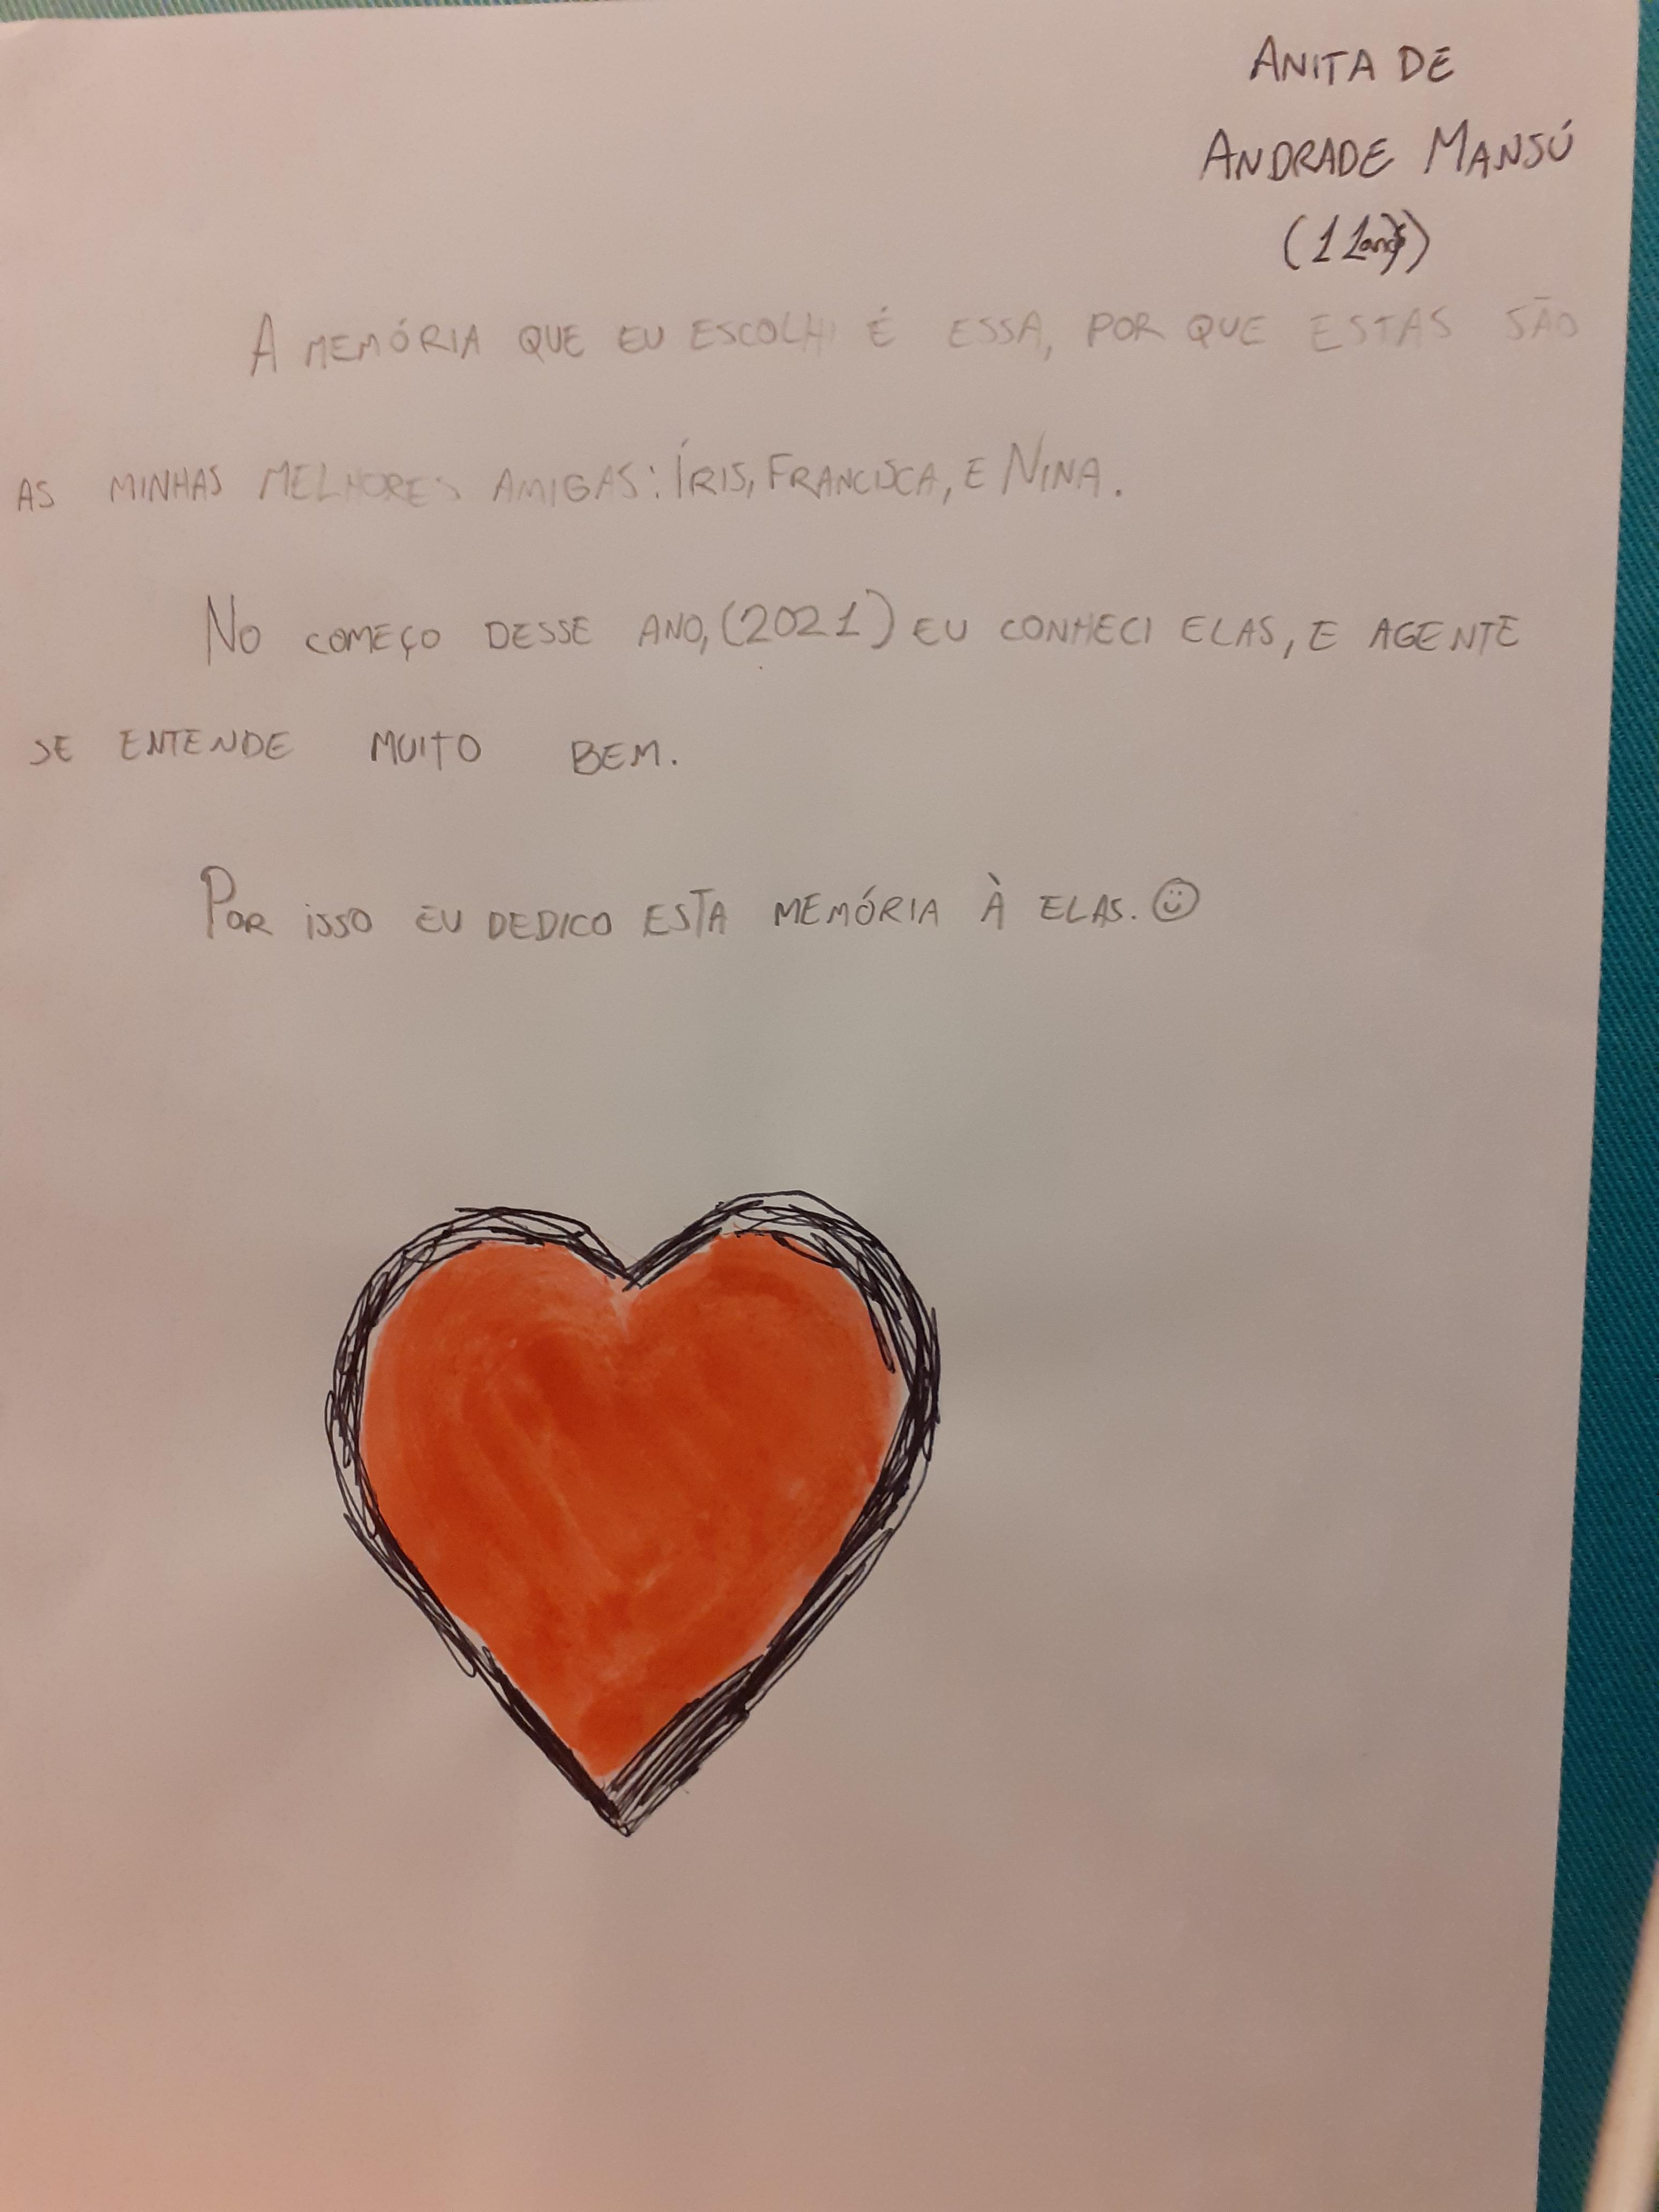 ANITA DE
ANDRADE MANSÚ
(11 anos)
A MEMÓRIA QUE EU ESCOLHI É ESSA, POR QUE ESTAS SÃO
AS MINHAS MELHORES AMIGAS: ÍRIS, FRANCISCA, E NINA.
NO COMEÇO DESSE ANO, (2021) EU CONHECI ELAS, E AGENTE
SE ENTENDE MUITO BEM.
POR ISSO EU DEDICO ESTA MEMÓRIA À ELAS. ☺